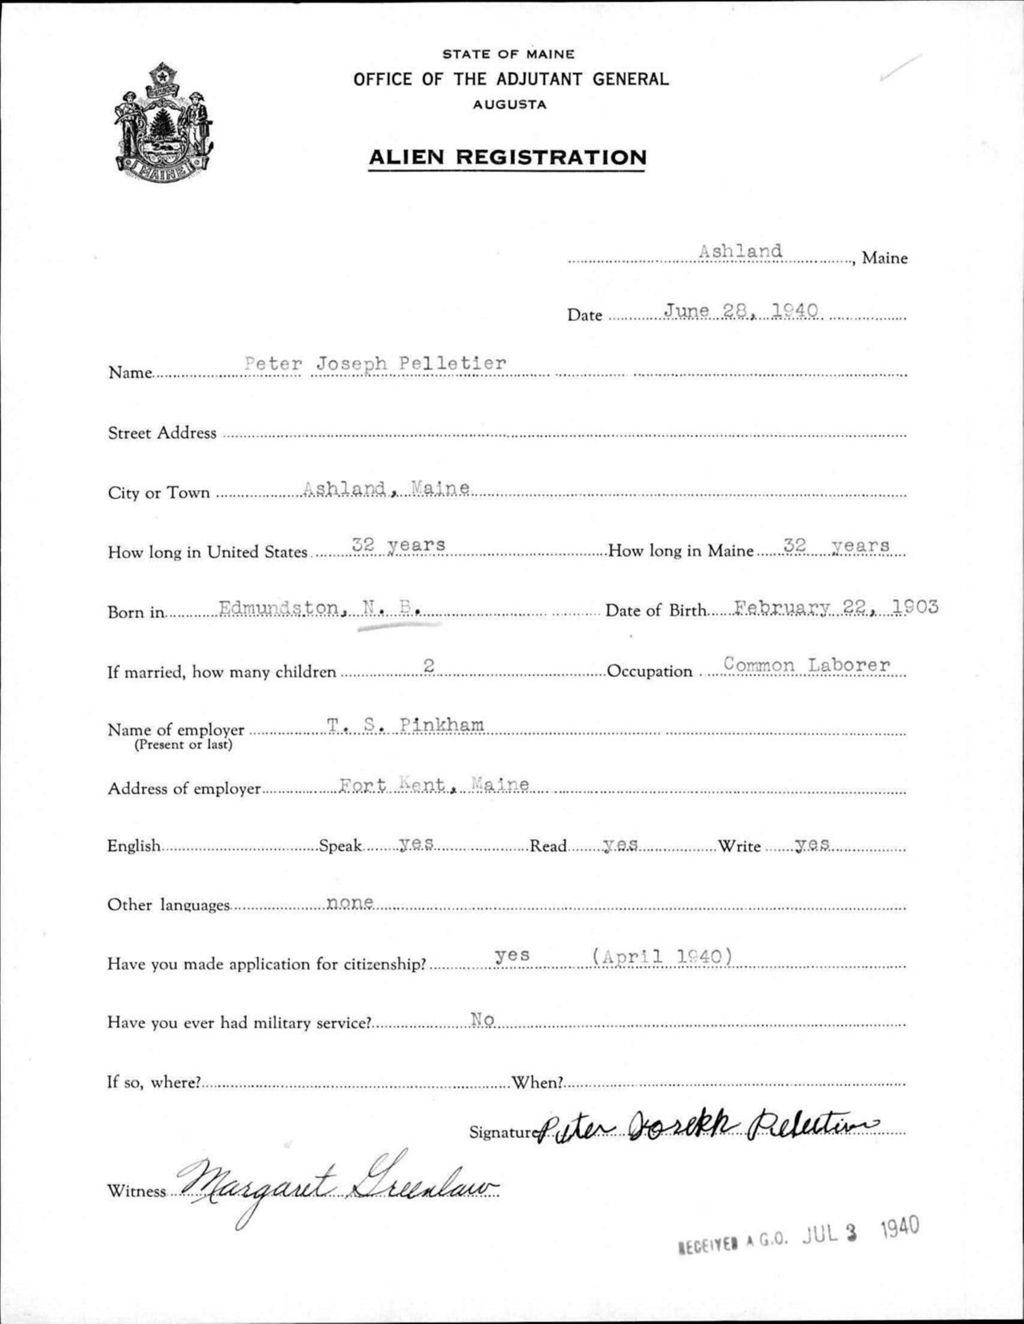 STATE OF MAINE
OFFICE OF THE ADJUTANT GENERAL
AUGUSTA
ALIEN REGISTRATION
MAINE
Ashland, Maine
Date June 28, 1940
Name Peter Joseph Pelletier
Street Address
City or Town Ashland, Maine
How long in United States 32 years How long in Maine 32 years
Born in Edmundston, N. B. Date of Birth February 22, 1903
If married, how many children 2 Occupation Common Laborer
Name of employer T. S. Pinkham
(Present or last)
Address of employer Fort Kent, Maine
English Speak yes Read yes Write yes
Other languages none
Have you made application for citizenship? yes (April 1940)
Have you ever had military service? No
If so, where? When?
Signature Peter Joseph Pelletier
Witness Margaret Greenlaw
RECEIVED A.G.O. JUL 3 1940